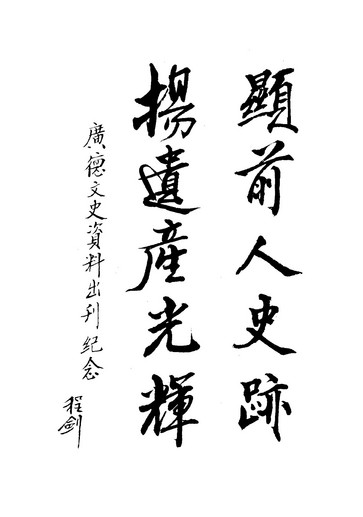 顯前人史跡
揚遺產光輝
廣德文史資料出刊紀念
程劍